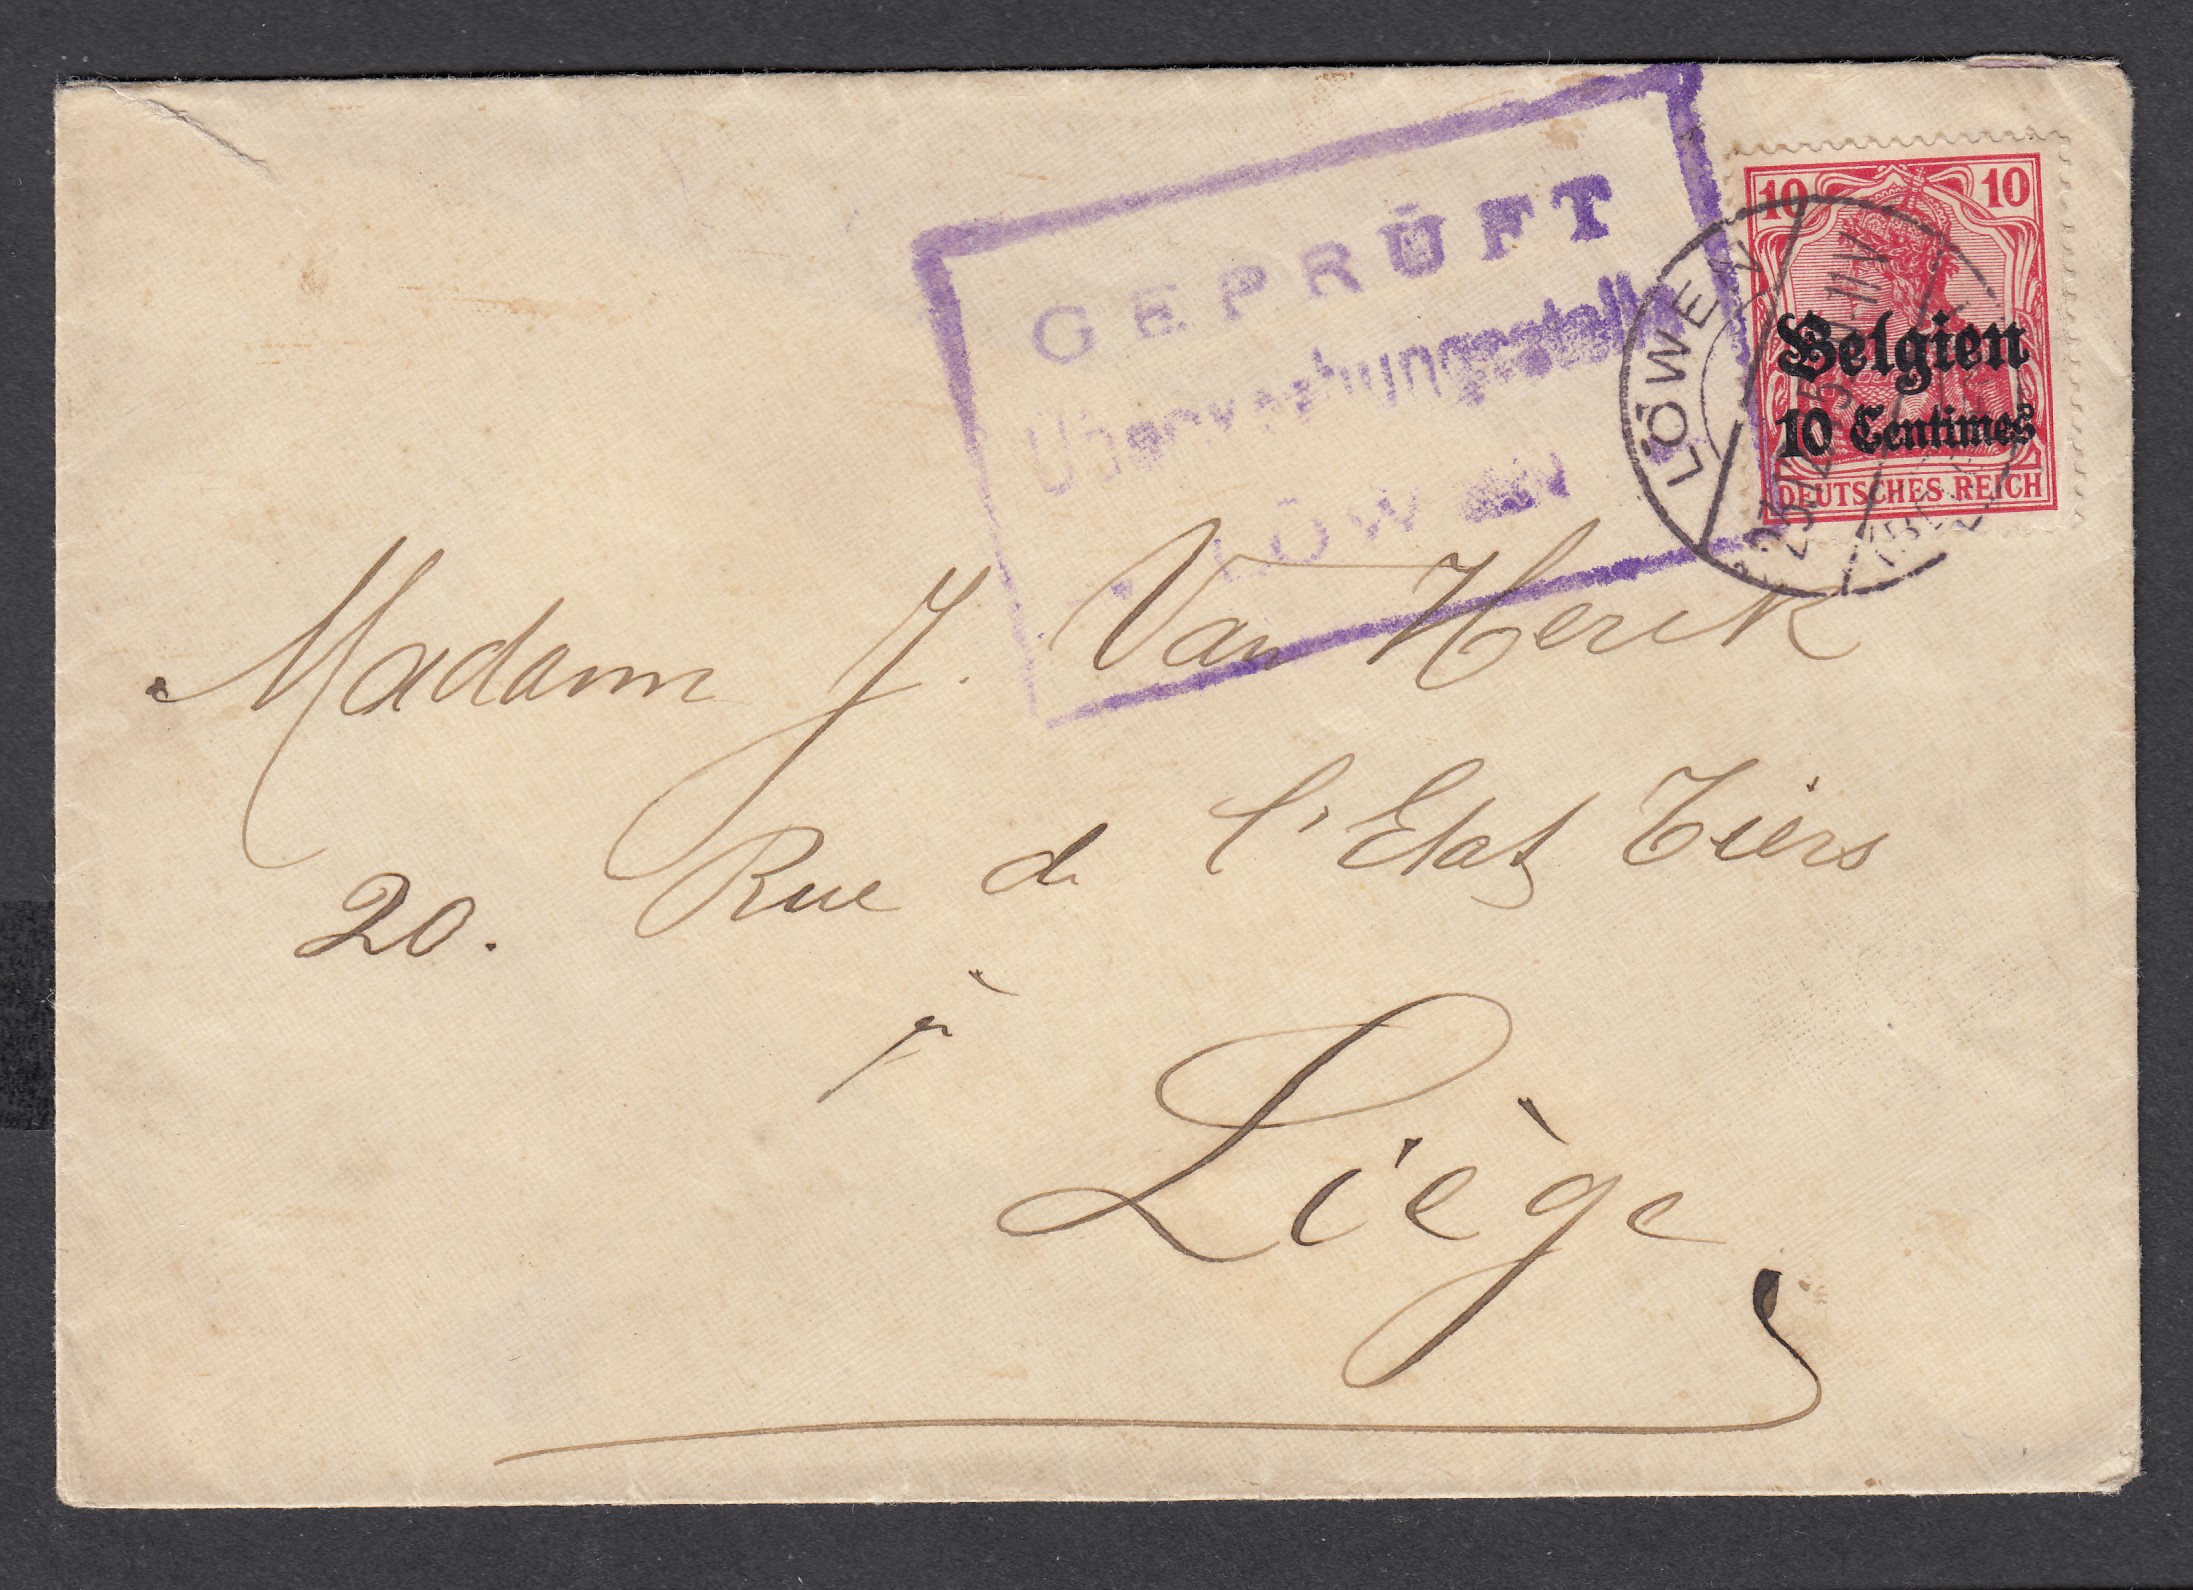 GEPRÜFT
Überwachungsstelle
LÖWEN
10 10
Belgien
10 Centimes
DEUTSCHES REICH
LÖWEN
Madame J. Van Herck
20. Rue de l'Etat Tiers
à
Liège